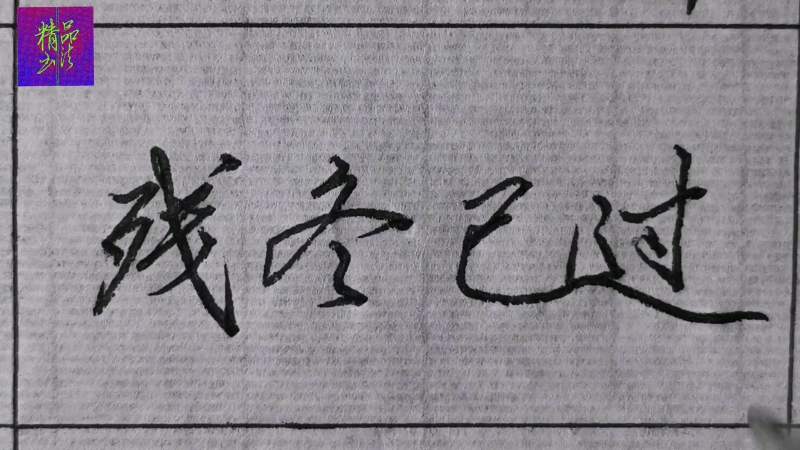 精品
书法
残冬已过